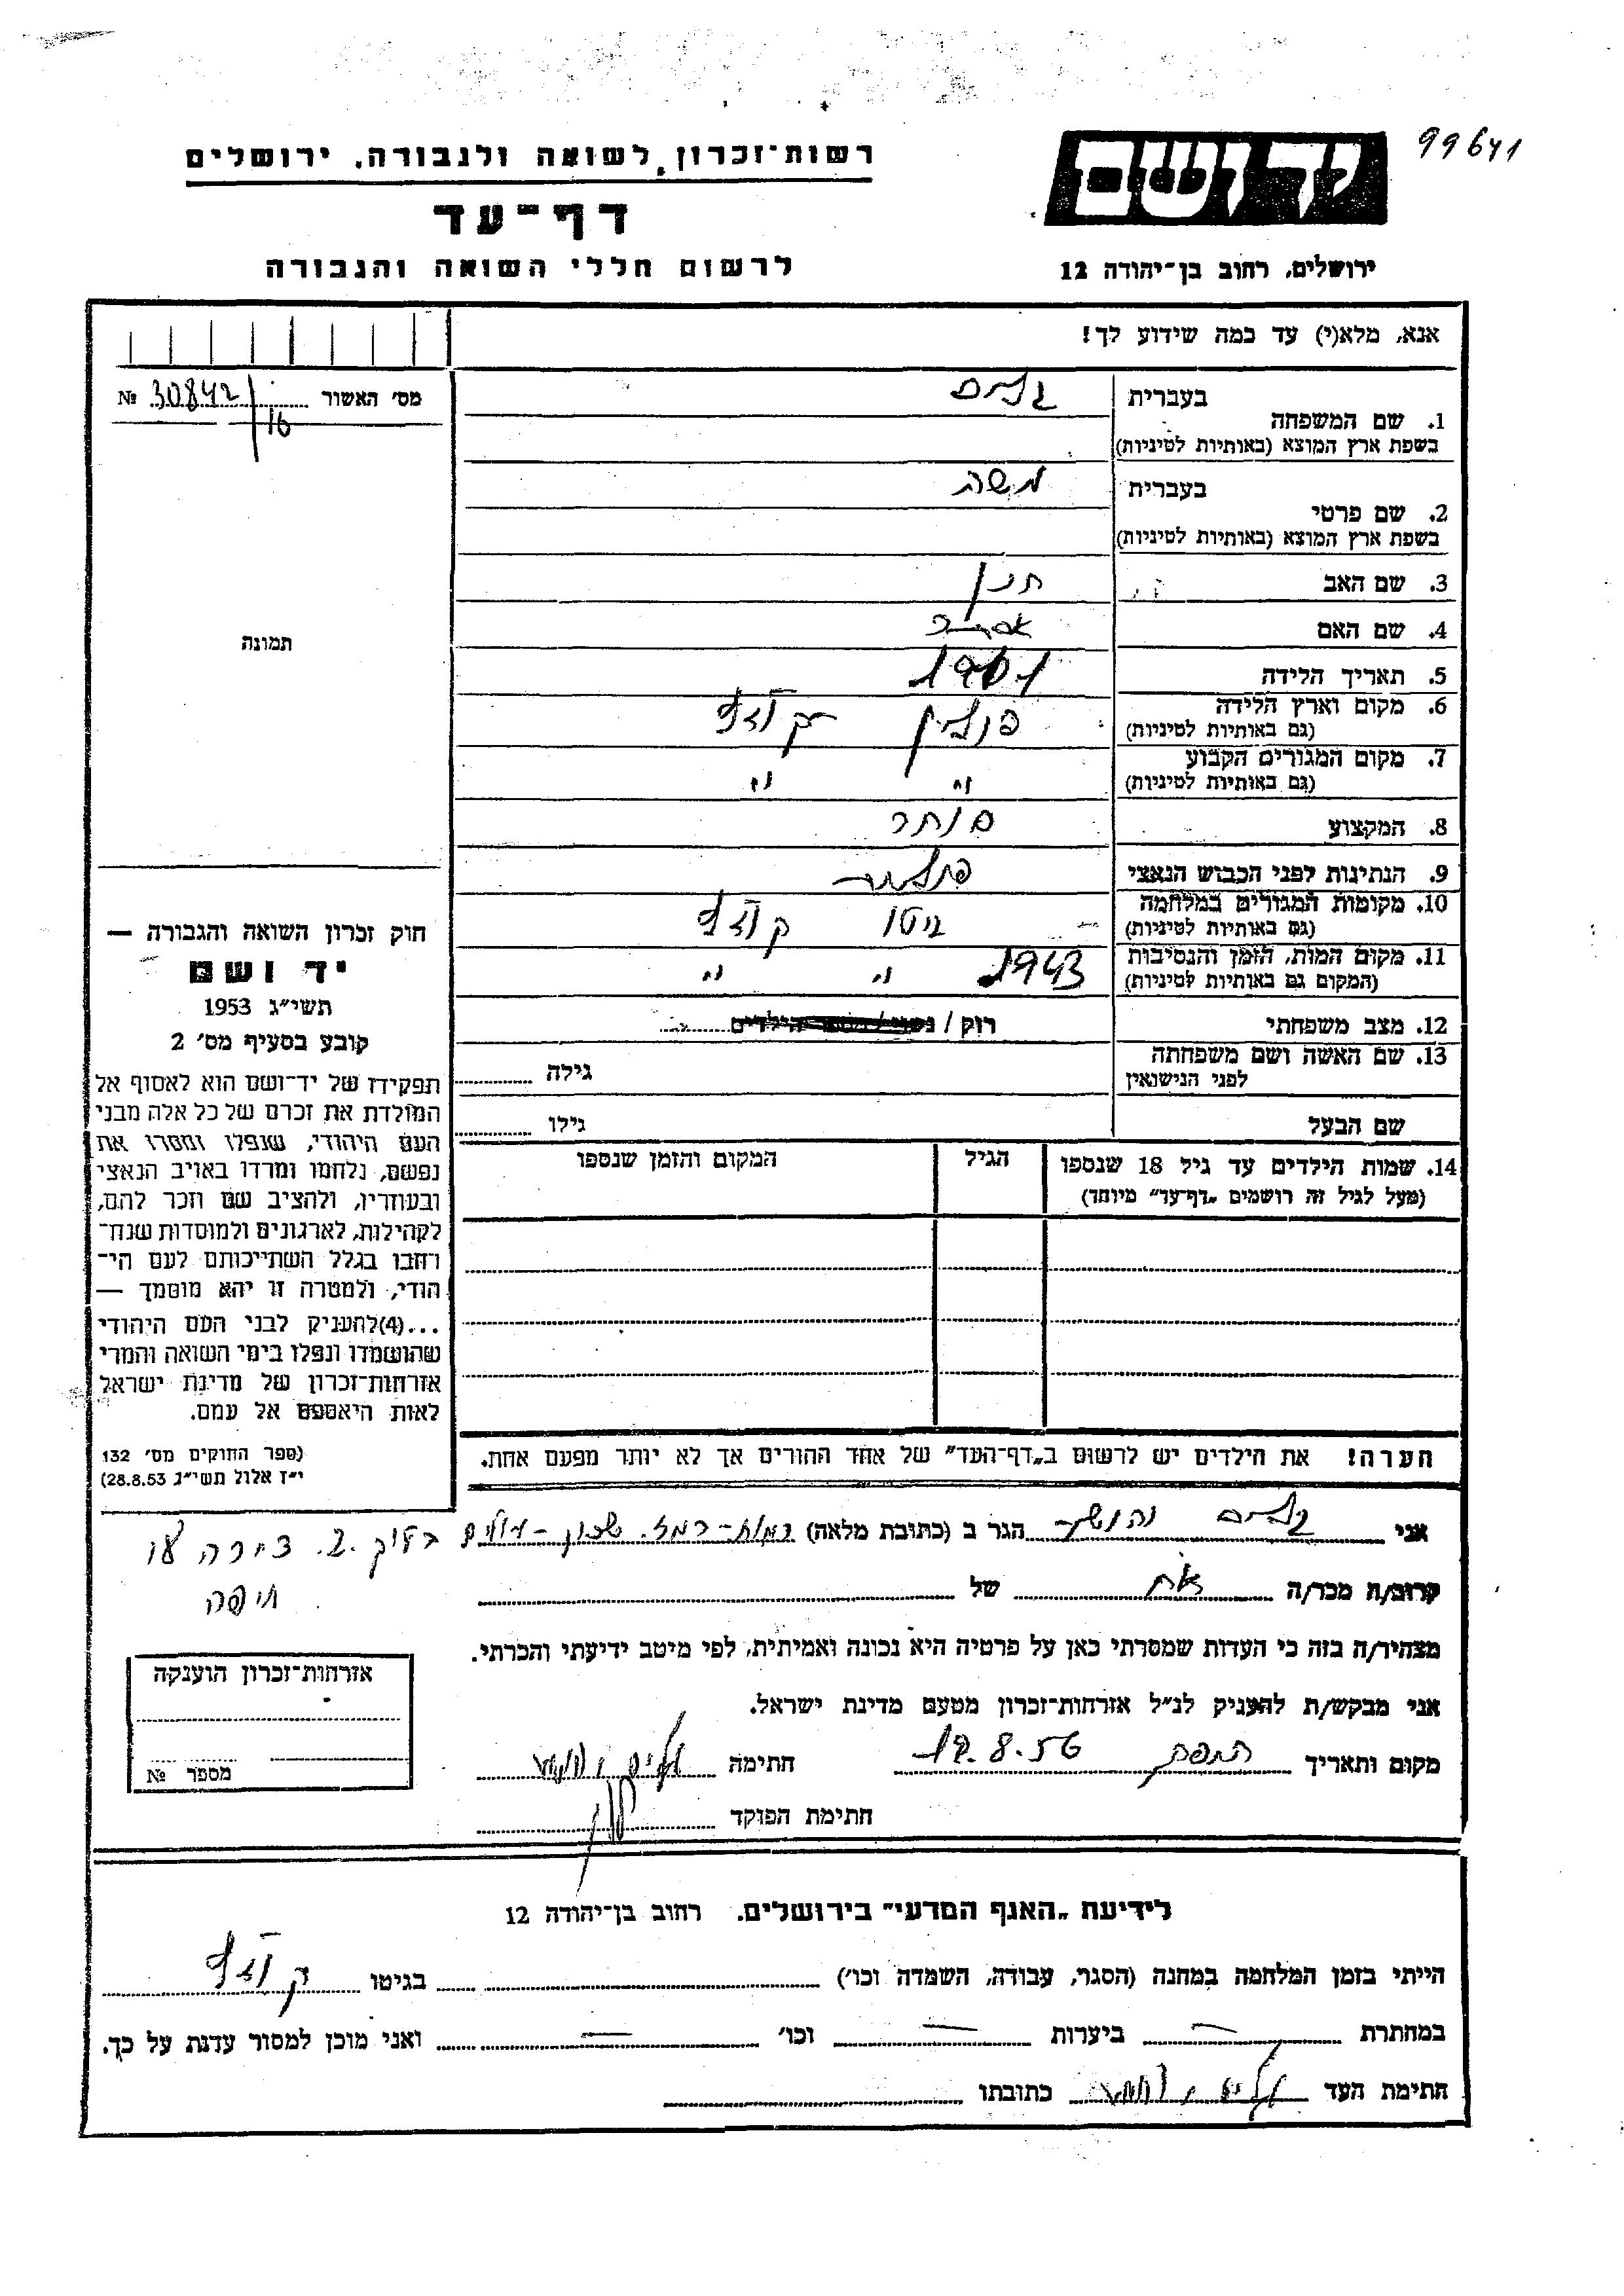 99641
יד ושם
רשות־זכרון לשואה ולגבורה, ירושלים
דף־עד
ירושלים, רחוב בן־יהודה 12
לרשום חללי השואה והגבורה
אנא, מלא(י) עד כמה שידוע לך!
מס׳ האשור № 30842/16
1. שם המשפחה
בעברית
בשפת ארץ המוצא (באותיות לטיניות)
2. שם פרטי
בעברית משה
בשפת ארץ המוצא (באותיות לטיניות)
3. שם האב חנן
4. שם האם
5. תאריך הלידה 1901
6. מקום וארץ הלידה פולין
(גם באותיות לטיניות)
7. מקום המגורים הקבוע " "
(גם באותיות לטיניות)
8. המקצוע סוחר
9. הנתינות לפני הכבוש הנאצי פולנית
10. מקומות המגורים במלחמה גיטו
(גם באותיות לטיניות)
11. מקום המות, הזמן והנסיבות 1943 " "
(המקום גם באותיות לטיניות)
12. מצב משפחתי רוק / נשוי / מספר הילדים
13. שם האשה ושם משפחתה
לפני הנישואין
גילה
שם הבעל גילו
14. שמות הילדים עד גיל 18 שנספו הגיל המקום והזמן שנספו
(מעל לגיל זה רושמים „דף־עד” מיוחד)
הערה! את הילדים יש לרשום ב„דף־העד” של אחד ההורים אך לא יותר מפעם אחת.
תמונה
חוק זכרון השואה והגבורה —
יד ושם
תשי״ג 1953
קובע בסעיף מס׳ 2
תפקידו של יד־ושם הוא לאסוף אל
המולדת את זכרם של כל אלה מבני
העם היהודי, שנפלו ומסרו את
נפשם, נלחמו ומרדו באויב הנאצי
ובעוזריו, ולהציב שם וזכר להם,
לקהילות, לארגונים ולמוסדות שנח־
רחבו בגלל השתייכותם לעם הי־
הודי, ולמטרה זו יהא מוסמך —
...(4)להעניק לבני העם היהודי
שהושמדו ונפלו בימי השואה והמרי
אזרחות־זכרון של מדינת ישראל
לאות היאספם אל עמם.
(ספר החוקים מס׳ 132
י״ז אלול תשי״ג 28.8.53)
אני הגר ב (כתובת מלאה) רמות־רמז. שכון־עולים
חיפה
קרוב/ה מכר/ה אח של
מצהיר/ה בזה כי העדות שמסרתי כאן על פרטיה היא נכונה ואמיתית, לפי מיטב ידיעתי והכרתי.
אני מבקש/ת להעניק לנ״ל אזרחות־זכרון מטעם מדינת ישראל.
מקום ותאריך 17.8.56 חתימה
חתימת הפוקד
אזרחות־זכרון הוענקה
מספר №
לידיעת „האגף המדעי” בירושלים. רחוב בן־יהודה 12
הייתי בזמן המלחמה במחנה (הסגר, עבודה, השמדה וכו׳) בגיטו
במחתרת — ביערות — וכו׳ — ואני מוכן למסור עדות על כך.
חתימת העד כתובתו